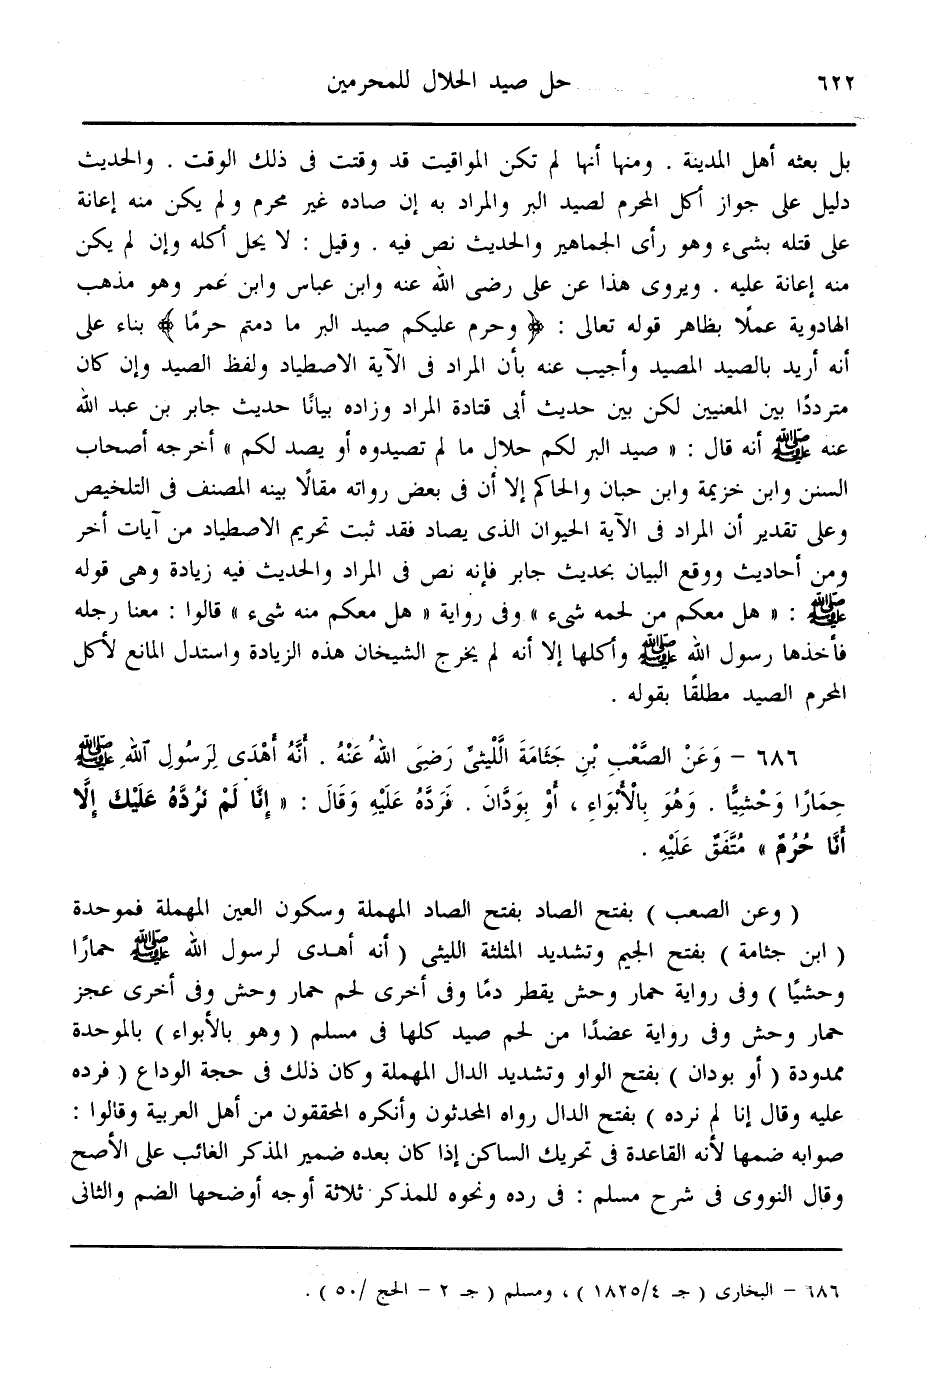 ٦٢٢ حل صيد الحلال للمحرمين
بل بعثه أهل المدينة . ومنها أنها لم تكن المواقيت قد وقتت فى ذلك الوقت . والحديث
دليل على جواز أكل المحرم لصيد البر والمراد به إن صاده غير محرم ولم يكن منه إعانة
على قتله بشىء وهو رأى الجماهير والحديث نص فيه . وقيل : لا يحل أكله وإن لم يكن
منه إعانة عليه . ويروى هذا عن على رضى الله عنه وابن عباس وابن عمر وهو مذهب
الهادوية عملًا بظاهر قوله تعالى : ﴿ وحرم عليكم صيد البر ما دمتم حرمًا ﴾ بناء على
أنه أريد بالصيد المصيد وأجيب عنه بأن المراد فى الآية الاصطياد ولفظ الصيد وإن كان
مترددًا بين المعنيين لكن بين حديث أبى قتادة المراد وزاده بيانًا حديث جابر بن عبد الله
عنه ﷺ أنه قال : « صيد البر لكم حلال ما لم تصيدوه أو يصد لكم » أخرجه أصحاب
السنن وابن خزيمة وابن حبان والحاكم إلا أن فى بعض رواته مقالًا بينه المصنف فى التلخيص
وعلى تقدير أن المراد فى الآية الحيوان الذى يصاد فقد ثبت تحريم الاصطياد من آيات أخر
ومن أحاديث ووقع البيان بحديث جابر فإنه نص فى المراد والحديث فيه زيادة وهى قوله
ﷺ : « هل معكم من لحمه شىء » وفى رواية « هل معكم منه شىء » قالوا : معنا رجله
فأخذها رسول الله ﷺ وأكلها إلا أنه لم يخرج الشيخان هذه الزيادة واستدل المانع لأكل
المحرم الصيد مطلقًا بقوله .
٦٨٦ – وَعَنْ الصَّعْبِ بْنِ جَثَّامَةَ الَّليْثِىِّ رَضِىَ اللهُ عَنْهُ . أَنَّهُ أَهْدَى لِرَسُولِ اللهِ ﷺ
حِمَارًا وَحْشِيًّا . وَهُوَ بِالْأَبْوَاءِ ، أَوْ بِوَدَّانَ . فَرَدَّهُ عَلَيْهِ وَقَالَ : « إِنَّا لَمْ نَرُدَّهُ عَلَيْكَ إِلَّا
أَنَّا حُرُمٌ » مُتَّفَقٌ عَلَيْهِ .
( وعن الصعب ) بفتح الصاد بفتح الصاد المهملة وسكون العين المهملة فموحدة
( ابن جثامة ) بفتح الجيم وتشديد المثلثة الليثى ( أنه أهدى لرسول الله ﷺ حمارًا
وحشيًا ) وفى رواية حمار وحش يقطر دمًا وفى أخرى لحم حمار وحش وفى أخرى عجز
حمار وحش وفى رواية عضدًا من لحم صيد كلها فى مسلم ( وهو بالأبواء ) بالموحدة
ممدودة ( أو بودان ) بفتح الواو وتشديد الدال المهملة وكان ذلك فى حجة الوداع ( فرده
عليه وقال إنا لم نرده ) بفتح الدال رواه المحدثون وأنكره المحققون من أهل العربية وقالوا :
صوابه ضمها لأنه القاعدة فى تحريك الساكن إذا كان بعده ضمير المذكر الغائب على الأصح
وقال النووى فى شرح مسلم : فى رده ونحوه للمذكر ثلاثة أوجه أوضحها الضم والثانى
٦٨٦ – البخارى ( جـ ٤/١٨٢٥ ) ، ومسلم ( جـ ٢ – الحج /٥٠ ) .